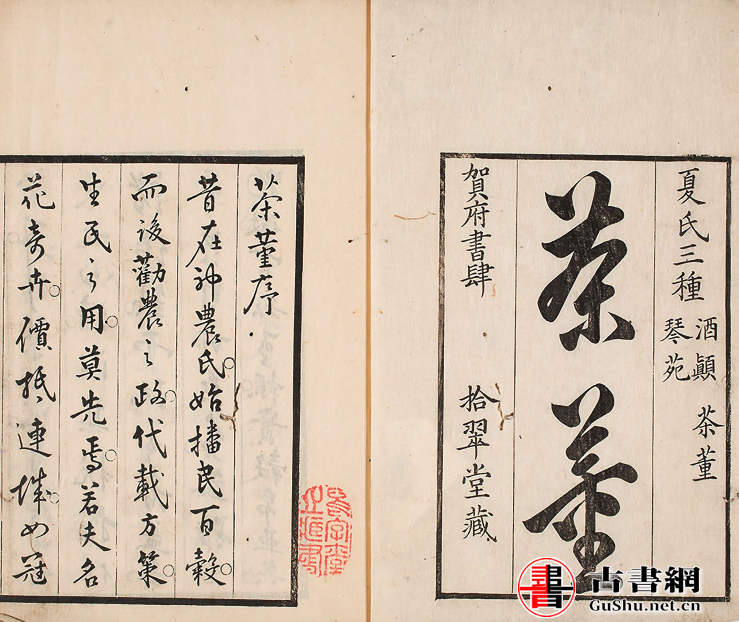 夏氏三種 酒顛 茶董
琴苑
茶董
賀府書肆 拾翠堂藏
茶董序
昔在神農氏始播民百穀
而後勸農之政代載方策
生民之用莫先焉若夫名
花奇卉價抵連城必冠
書 古書網
GuShu.net.cn